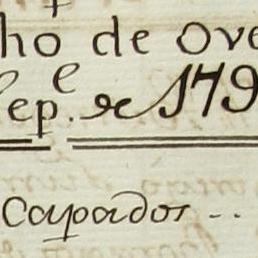 ho de Ove
ep.e de 179
Capados ..